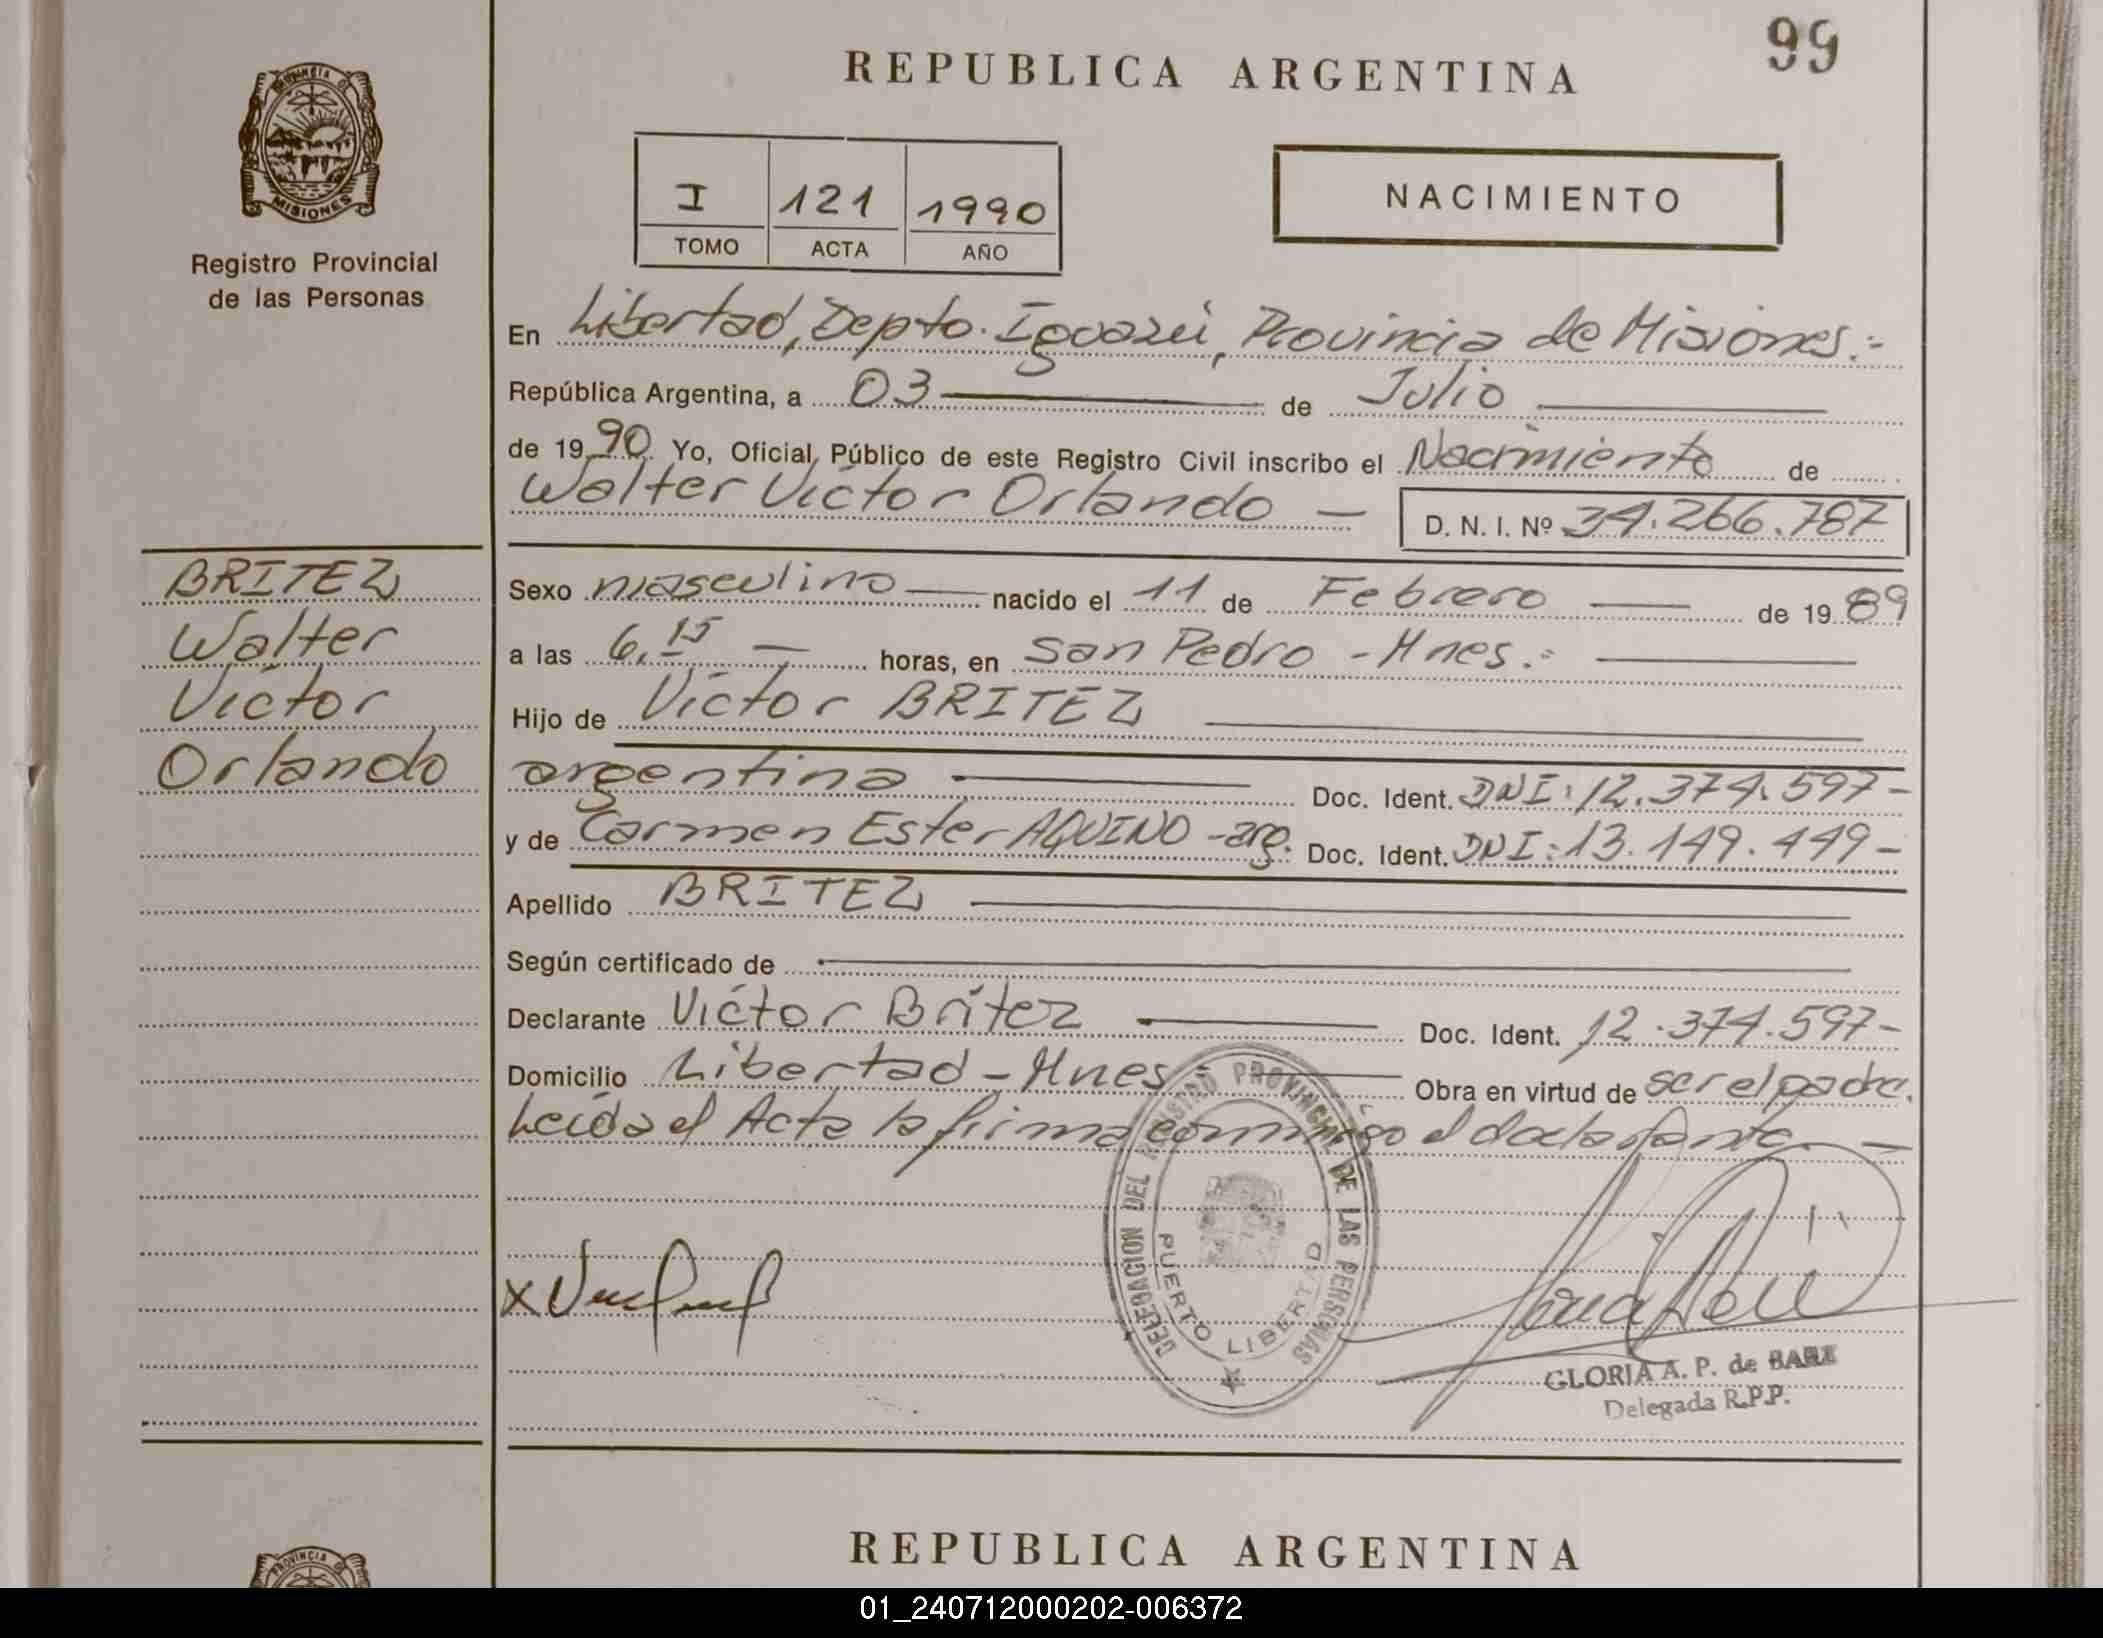 99
REPUBLICA ARGENTINA
PROVINCIA DE
MISIONES
Registro Provincial
de las Personas
I 121 1990
TOMO ACTA AÑO
NACIMIENTO
En Libertad, Depto. Iguazú, Provincia de Misiones.-
República Argentina, a 03 de Julio
de 1990. Yo, Oficial Público de este Registro Civil inscribo el Nacimiento de
Walter Víctor Orlando — D. N. I. Nº 34.266.787
BRITEZ
Walter
Víctor
Orlando
Sexo masculino — nacido el 11 de Febrero — de 1989
a las 6,15 — horas, en San Pedro - Mnes.-
Hijo de Víctor BRITEZ
argentina — Doc. Ident. DNI: 12.374.597-
y de Carmen Ester AQUINO - arg. Doc. Ident. DNI: 13.149.449-
Apellido BRITEZ
Según certificado de
Declarante Víctor Britez — Doc. Ident. 12.374.597-
Domicilio Libertad - Mnes - Obra en virtud de ser el padre.
Leída el Acta la firma conmigo el declarante. —
DELEGACION DEL REGISTRO PROVINCIAL DE LAS PERSONAS
PUERTO LIBERTAD
x
GLORIA A. P. de BARI
Delegada R.P.P.
REPUBLICA ARGENTINA
PROVINCIA DE
01_240712000202-006372